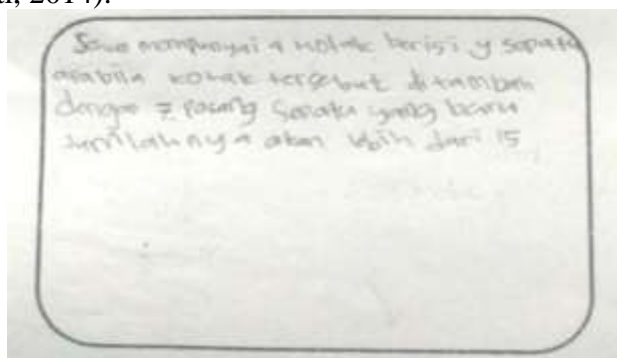 , 2014).
Saya mempunyai 4 kotak berisi y sepatu
apabila kotak tersebut ditambah
dengan 7 pasang sepatu yang baru
jumlahnya akan lebih dari 15